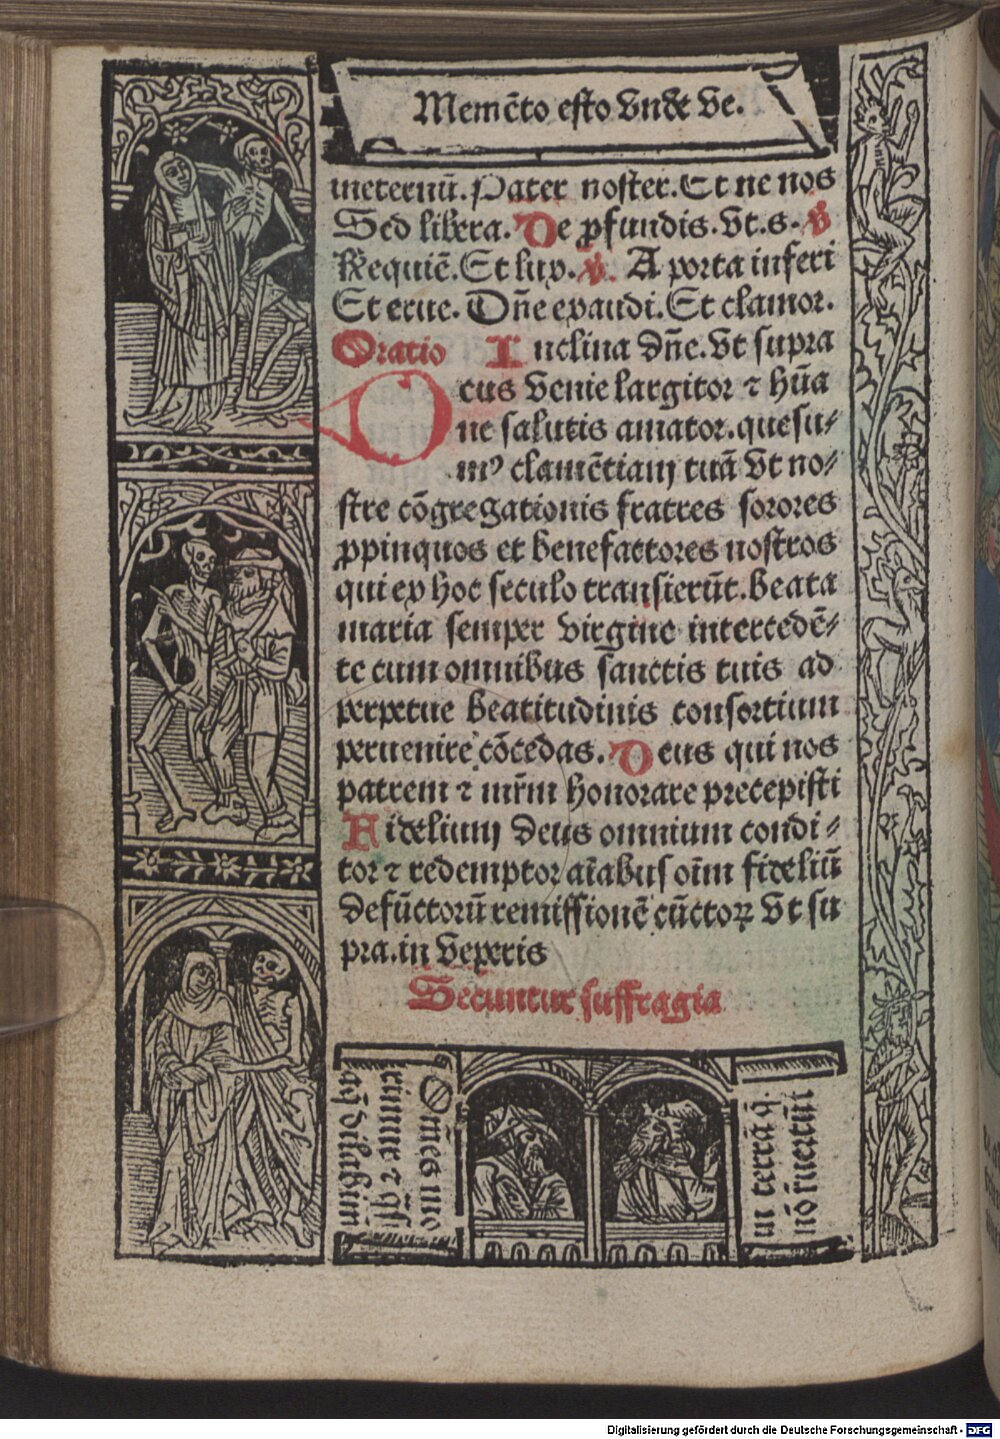 Memēto esto vnde ve.
meternū. Pater noster. Et ne nos
Sed libera. De ꝓfundis. vt. s. ℣
Requiē. Et lux. ℣. A porta inferi
Et erue. Dn̄e exaudi. Et clamor.
Oratio Inclina dn̄e. vt supra
Deus venie largitor ⁊ hūa
ne salutis amator. quesu⸗
mꝰ clamētiam tuā vt no⸗
stre cōgregationis fratres sorores
ꝓpinquos et benefactores nostros
qui ex hoc seculo transierūt. beata
maria semper virgine intercedē⸗
te cum omnibus sanctis tuis ad
perpetue beatitudinis consortium
peruenire cōcedas. Deus qui nos
patrem ⁊ mr̄m honorare precepisti
Fidelium deus omnium condi⸗
tor ⁊ redemptor aīabus oīm fideliū
defūctorū remissionē cūctoꝝ vt su
pra. in veperis
Secuntur suffragia
Om̄es uno
in terrā q̄.
nō ruertūtur
Digitalisierung gefördert durch die Deutsche Forschungsgemeinschaft - DFG